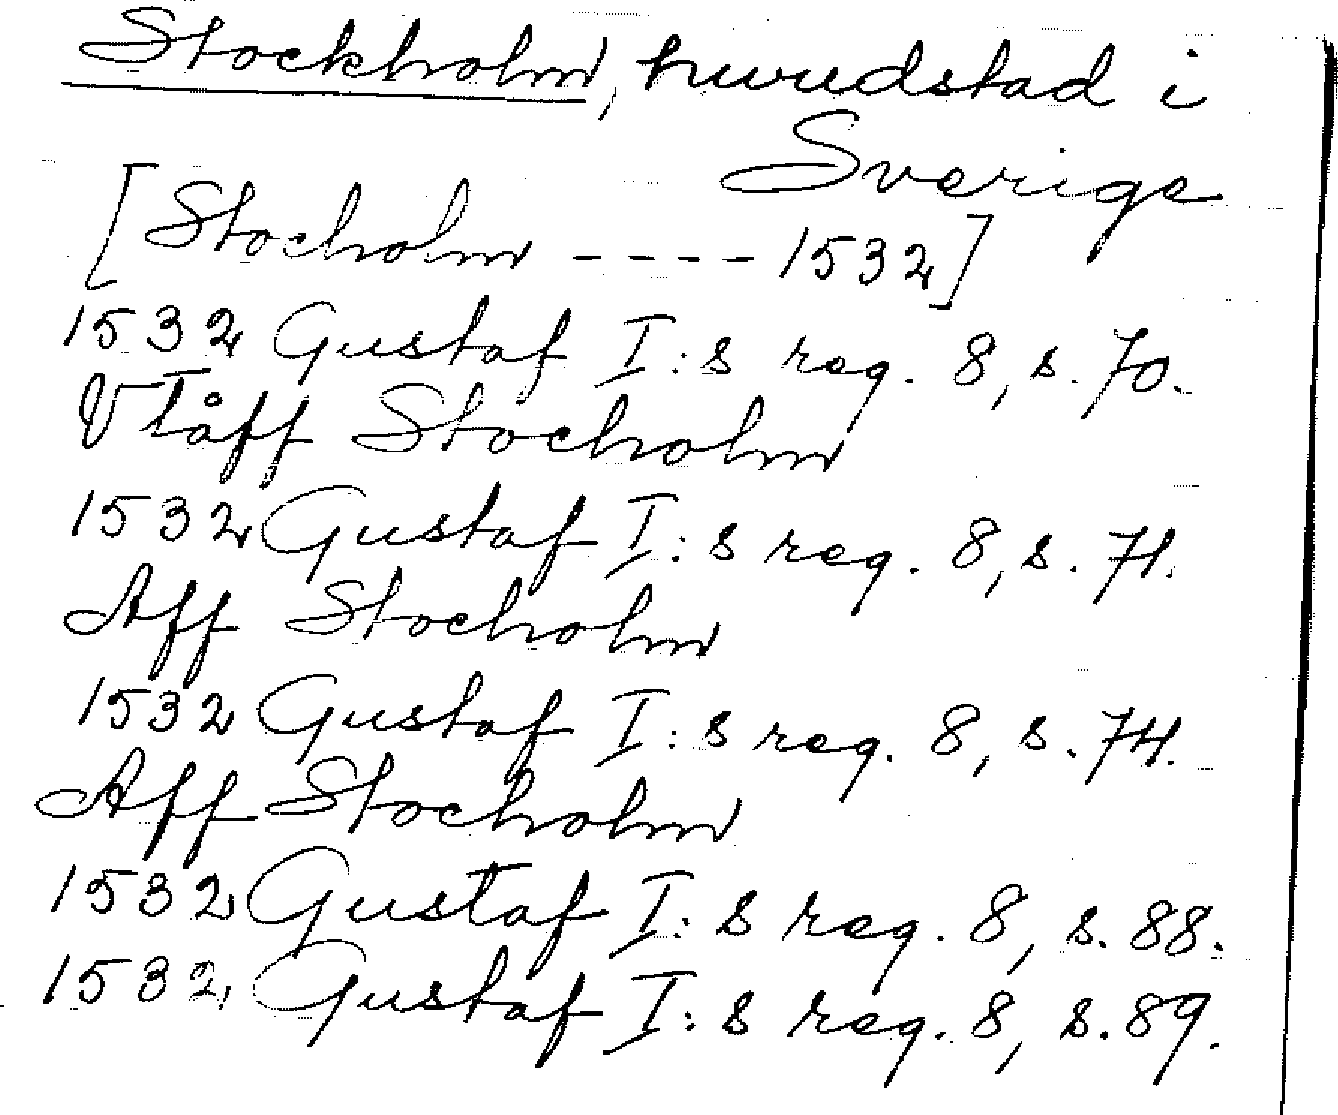 Stockholm, huvudstad i
Sverige
[Stocholm ---- 1532]
1532 Gustaf I:s reg. 8, s. 70.
Vtåff Stocholm
1532 Gustaf I:s reg. 8, s. 71.
Aff Stocholm
1532 Gustaf I:s reg. 8, s. 74.
Aff Stocholm
1532 Gustaf I:s reg. 8, s. 88.
1532 Gustaf I:s reg. 8, s. 89.